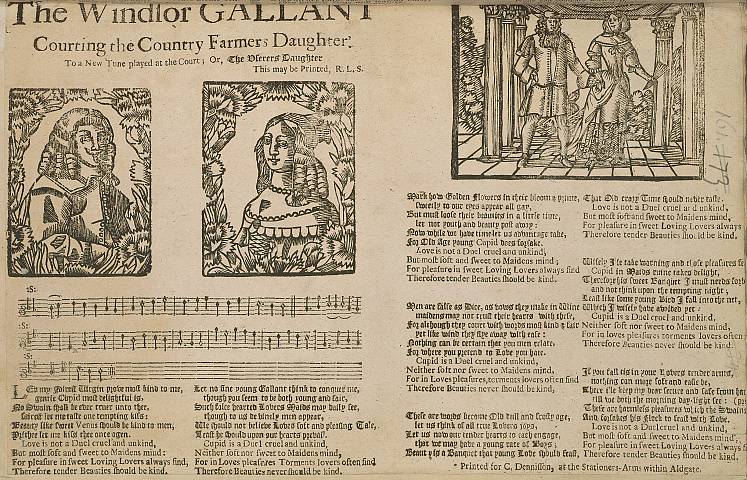 The Windsor GALLANT
Courting the Country Farmers Daughter.
To a New Tune played at the Court; Or, The Userers Daughter
This may be Printed, R. L. S.
:S:
:S:
:S:
my fairest Virgin prove most kind to me,
gentle Cupid most delightful is,
No Swain shall be ever truer unto thee,
let me taste one tempting kiss:
Beauty like sweet Venus should be kind to men,
Prithee let me kiss thee once agen.
Love is not a Duel cruel and unkind,
But most soft and sweet to Maidens mind:
For pleasure in sweet Loving Lovers always find,
Therefore tender Beauties should be kind.
Let no fine young Gallant think to conquer me,
though you seem to be both young and fair,
Such false hearted Lovers Maids may daily see,
though to us be kindly men appear,
We should not believe Loves soft and pleasing Tale,
Least he should upon our hearts prevail.
Cupid is a Duel cruel and unkind,
Neither soft nor sweet to Maidens mind,
For in Loves pleasures Torments lovers often find
Therefore tender Beauties never should be kind.
Mark how Golden Flowers in their bloom & prime,
sweetly to our eyes appear all gay,
But must loose their beauties in a little time,
let not youth and beauty post away:
Now while we have time let us advantage take,
For Old Age young Cupid does forsake.
Love is not a Duel cruel and unkind,
But most soft and sweet to Maidens mind;
For pleasure in sweet Loving Lovers always find
Therefore tender Beauties should be kind.
Men are false as Dice, as vows they make in Wine
maidens may not trust their hearts with these,
For although they court with words most kind & fair
yet like wind they flye away with ease:
Nothing can be certain that you men relate,
For where you pretend to Love you hate.
Cupid is a Duel cruel and unkind,
Neither soft nor sweet to Maidens mind,
For in Loves pleasures, torments lovers often find
Therefore Beauties never should be kind,
These are words become Old dull and frosty age,
let us think of all true Lovers joys,
Let us now our tender hearts to each engage,
that we may bete a young race of Boys;
Beauty is a Banquet that young Love should feast,
That Old crazy Time should never taste.
Love is not a Duel cruel and unkind,
But most soft and sweet to Maidens mind,
For pleasure in sweet Loving Lovers always
Therefore tender Beauties should be kind.
Wisely I'le take warning and those pleasures
Cupid in Maids ruine takes delight,
Therefore his sweet Banquet I must needs
and not think upon the tempting night;
Least like some young Bird I fall into the net,
Which I wisely have avoided yet:
Cupid is a Duel cruel and unkind,
Neither soft nor sweet to Maidens mind,
For in loves pleasures torments lovers often
Therefore Beauties never should be kind.
If you fall in your Lovers tender arms,
nothing can more soft and easie be,
There I'le keep my dear secure and safe from
till we both the morning day-light see:
These are harmless pleasures which the Swains
And forsakes his flock to feast with Love.
Love is not a Duel cruel and unkind,
But most soft and sweet to Maidens mind,
For pleasure in sweet Loving Lovers always
Therefore tender Beauties should be kind.
Printed for C. Dennisson, at the Stationers-Arms within Aldgate.